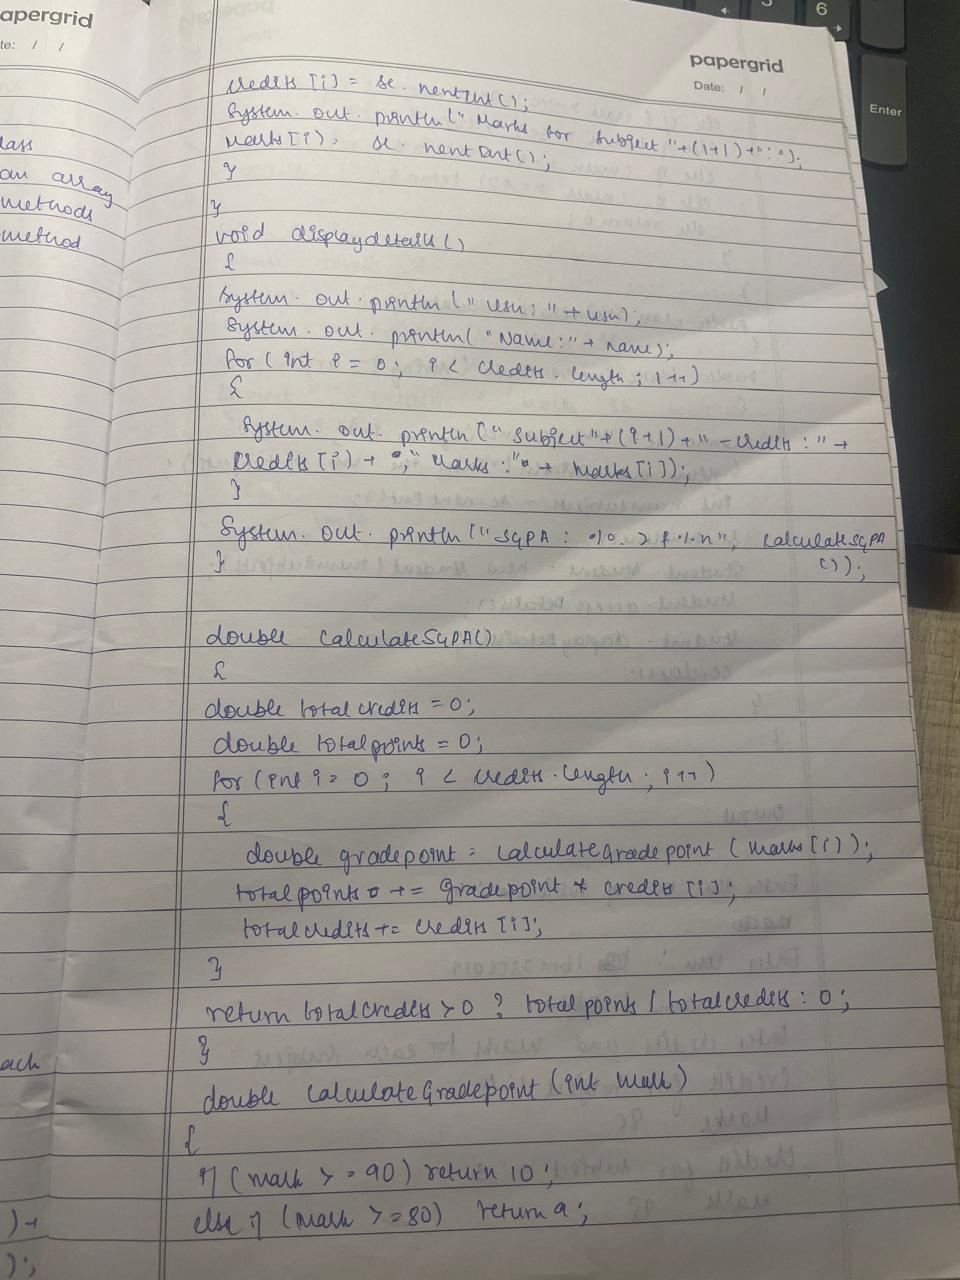 apergrid
te: / /
lass
an array
methods
method
ach
) +
);
6
Enter
papergrid
Date: / /
credits [i] = sc. nextInt();
System. out. println(" Marks for subject "+(i+1)+":");
marks[i] = sc. nextInt();
}
}
void displaydetails()
{
System. out. println (" usn: " + usn);
System. out. println( "Name:" + name);
for ( int i = 0; i < credits. length ; i++)
{
System. out. println (" subject"+(i+1)+ " - credits :" +
credits [i] + ", marks :" + marks[i]);
}
System. out. println ("SGPA : %.2f%n", calculateSGPA
());
}
double calculateSGPA()
{
double totalcredits = 0;
double totalpoints = 0;
for (int i = 0 ; i < credits.length ; i++)
{
double gradepoint = calculategradepoint ( marks [i]);
totalpoints += gradepoint * credits [i];
totalcredits += credits [i];
}
return totalcredits > 0 ? totalpoints / totalcredits : 0;
}
double calculateGradepoint (int mark)
{
if (mark > = 90) return 10;
else if (mark > = 80) return 9;